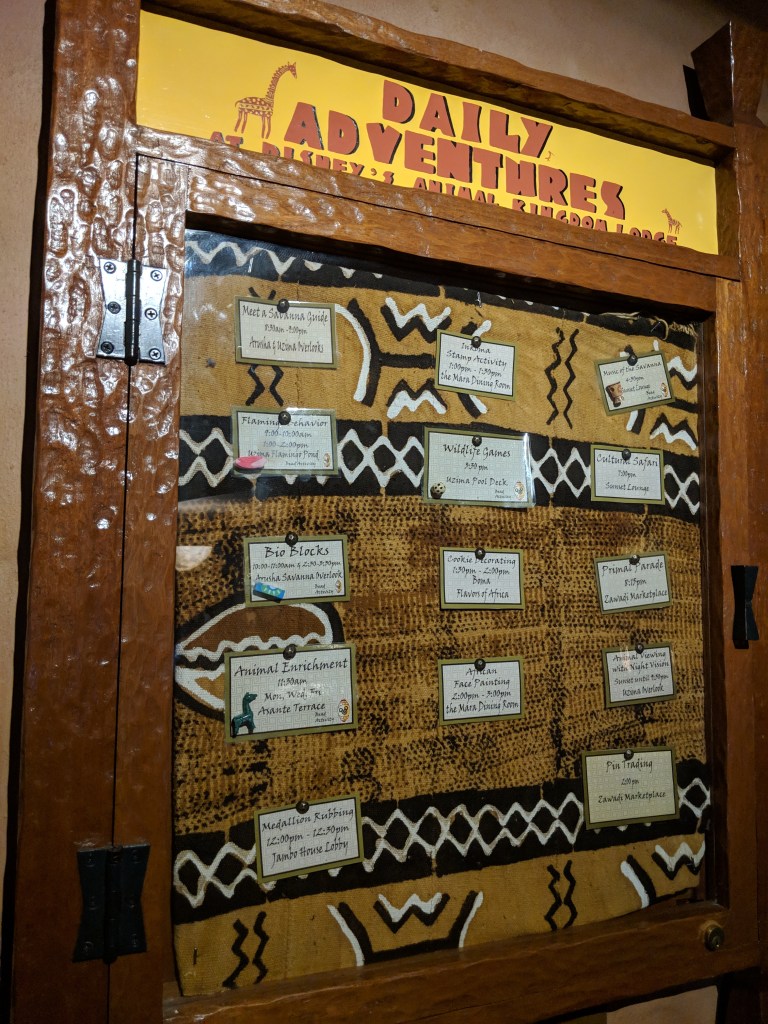 DAILY
ADVENTURES
AT DISNEY'S ANIMAL KINGDOM LODGE
Meet a Savanna Guide
Arusha & Uzima Overlooks
Flamingo Behavior
9:00-10:00am
1:00-2:00pm
Uzima Flamingo Pond
Bead Activity
Bio Blocks
10:00-11:00am & 2:30-3:30pm
Arusha Savanna Overlook
Bead Activity
Animal Enrichment
11:30am
Mon, Wed, Fri
Asante Terrace
Bead Activity
Medallion Rubbing
12:00pm - 12:30pm
Jambo House Lobby
Inkoma
Stamp Activity
1:00pm - 1:30pm
the Mara Dining Room
Wildlife Games
3:30pm
Uzima Pool Deck
Bead Activity
Cookie Decorating
1:30pm - 2:00pm
Boma
Flavors of Africa
African
Face Painting
2:00pm - 3:00pm
the Mara Dining Room
Music of the Savanna
4:30pm
Sunset Lounge
Bead Activity
Cultural Safari
7:00pm
Sunset Lounge
Primal Parade
8:15pm
Zawadi Marketplace
Animal Viewing
with Night Vision
Sunset until 9:30pm
Uzima Overlook
Pin Trading
Zawadi Marketplace